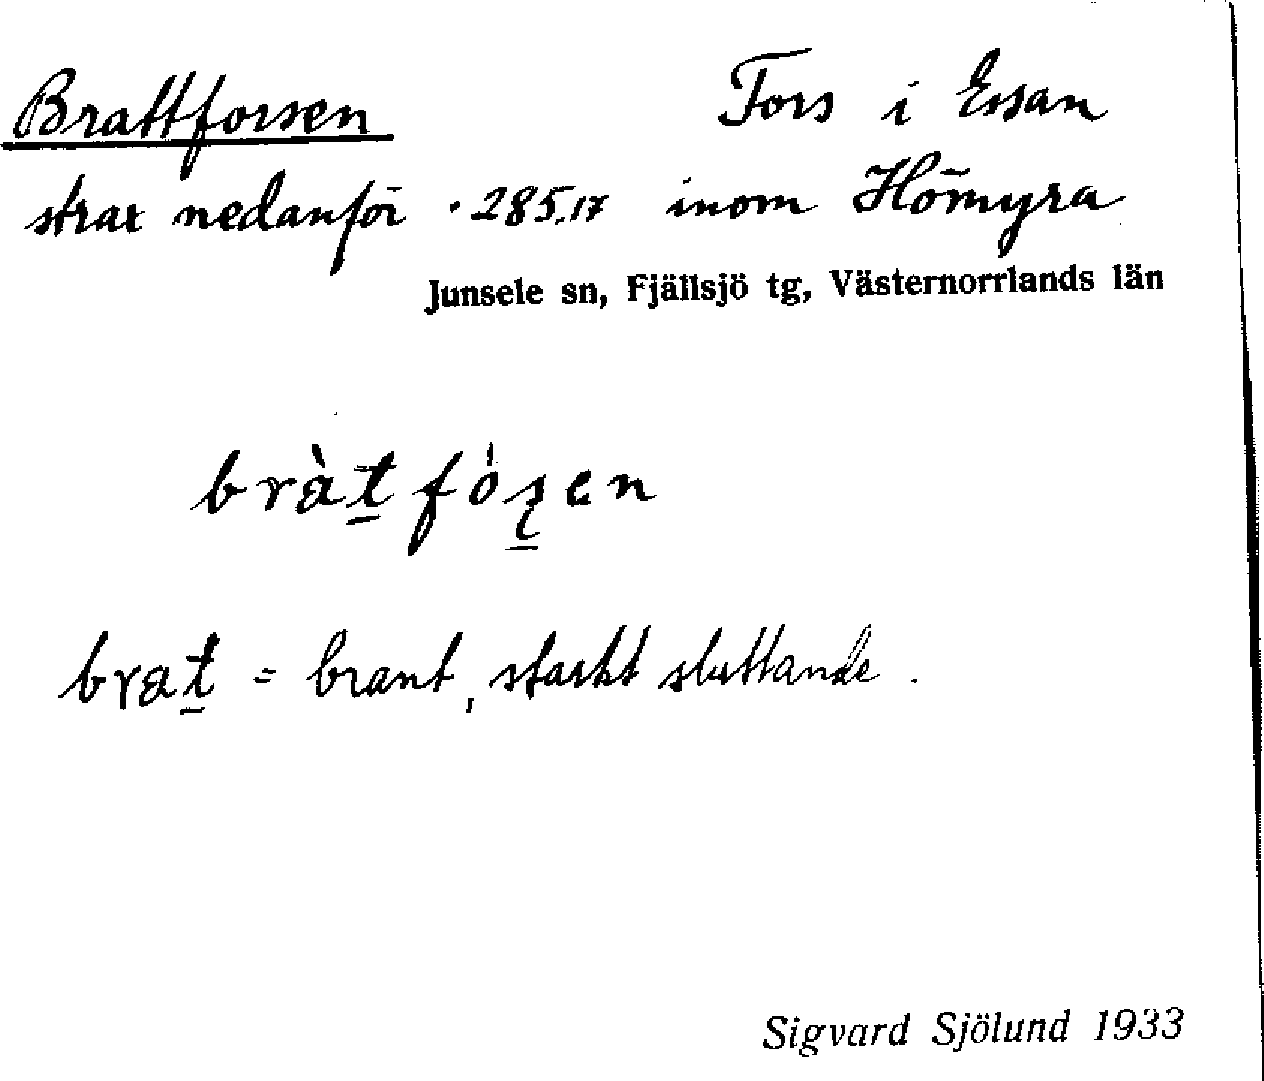 Brattforsen Fors i Essan
strax nedanför • 285,17 inom Hömyra
Junsele sn, Fjällsjö tg, Västernorrlands län
bràt̲fóʂ̲en
brat̲ = brant, starkt sluttande.
Sigvard Sjölund 1933